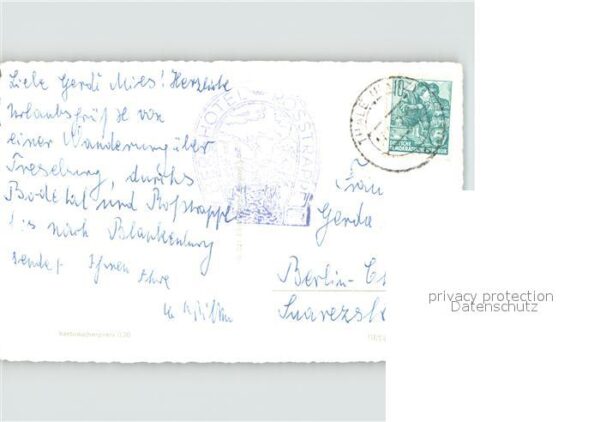 Liebe Gerdi Mies! Herzliche
Urlaubsgrüße von
einer Wanderung über
Treseburg, durchs
Bodetal und Roßtrappe
bis nach Blankenburg
sendet Ihnen Ihre
HOTEL ROSSTRAPPE
THALE
10
DEUTSCHE
DEMOKRATISCHE
Frau
Gerda
Berlin-C
Suarezst
privacy protection
Datenschutz